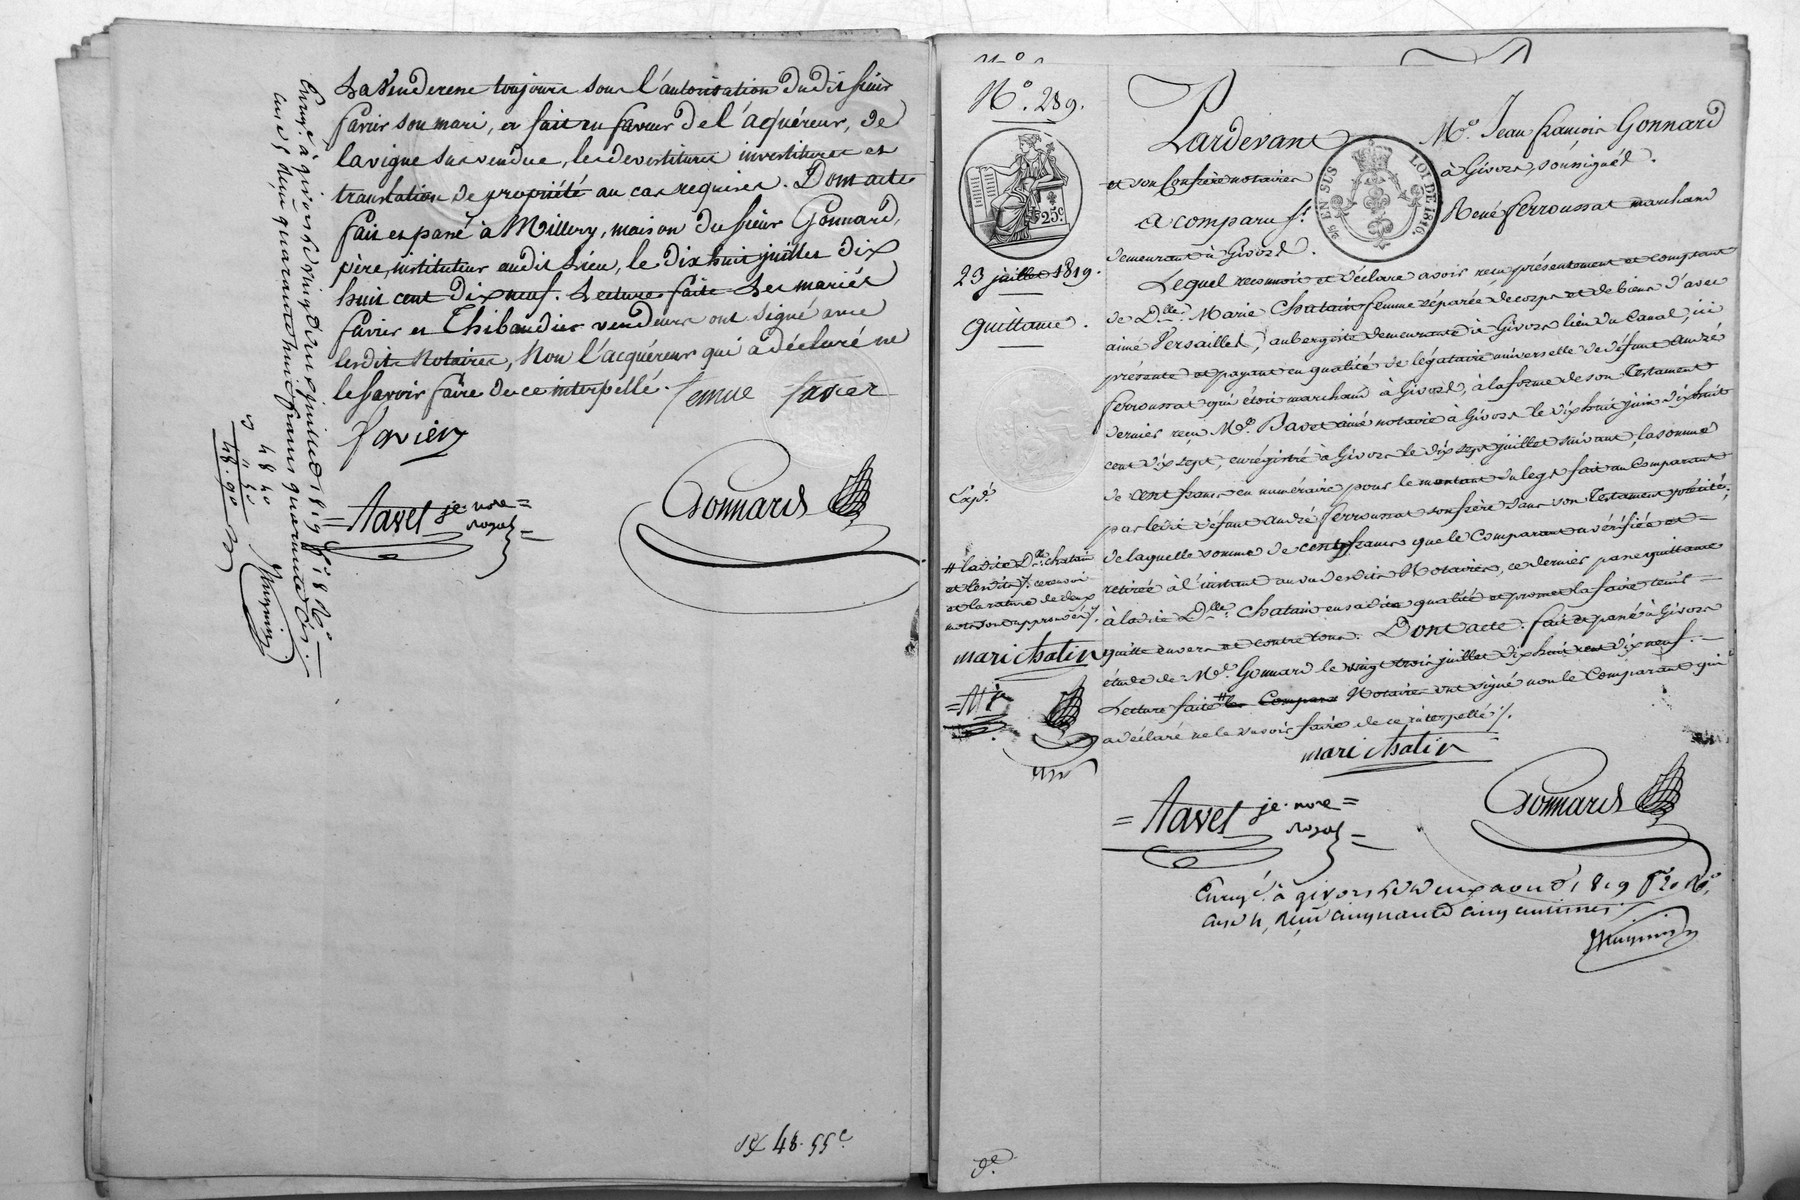 La Venderesse toujours sous l'autorisation dudit sieur
favier son mari, et fait en faveur de l'acquéreur, de
la vigne sus vendue, les devestitures investitures et
translation de propriété au cas requises. Dont acte
fait et passé à Millery, maison du sieur Gonnard,
père, instituteur audit Lieu, le dix huit juillet dix
huit cent dix neuf. Lecture faite Les mariés
favier et Thibaudier vendeurs ont signé avec
lesdits Notaires, Non l'acquéreur qui a déclaré ne
le savoir faire de ce interpellé.
femme favier
favier
Tavel je. nore
royal
Gonnard
Enreg.é à givors le vingt deux juillet 1819 f.o 18 R.o
case 5 reçu quarante huit francs quarante cts.
48 40
4 40
48. 90
48. 55c.
N.o 289.
25c.
23 juillet 1819.
Quittance.
Exp.é
# ladite D.lle chatain
et lesdits /. ce renvoi
et la rature de deux
mots sont approuvés /.
mari chatin
25 EN SUS LOI DE 1816.
Pardevant M.e Jean françois Gonnard
et son Confrère notaires à Givors, soussignés.
a comparu S.r René ferroussat marchand
demeurant à Givors.
Lequel reconnoit et déclare avoir reçu présentement et comptant
de D.lle Marie Chatain femme séparée de corps et de biens d'avec
aimé Versailles, aubergiste demeurante à Givors lieu du Canal, ici
présente et payant en qualité de légataire universelle de défunt André
ferroussat qui étoit marchand à Givors, à la forme de son Testament
dernier reçu M.e Bavet ainé notaire à Givors le dix huit juin dix huit
cent dix sept, enrégistré à Givors le dix sept juillet suivant, la somme
de cent francs en numéraire pour le montant du legs fait au Comparant
par ledit défunt André ferroussat son frère dans son Testament précité;
de laquelle somme de cent francs que le Comparant a vérifiée et
retirée à l'instant au vu desdits Notaires, ce dernier passe quittance
à ladite D.lle Chatain en sadite qualité et promet la faire tenir
quitte envers et contre tous. Dont acte. fait et passé à Givors
étude de M.e Gonnard le vingt trois juillet dix huit cent dix neuf.
Lecture faite # les Compara Notaires ont signé non le Comparant qui
a déclaré ne le savoir faire de ce interpellé /.
mari chatin
Tavel je. nore
royal
Gonnard
Enreg.é à givors le deux aout 1819 f.o 20 R.o
case 4, reçu cinquante cinq centimes